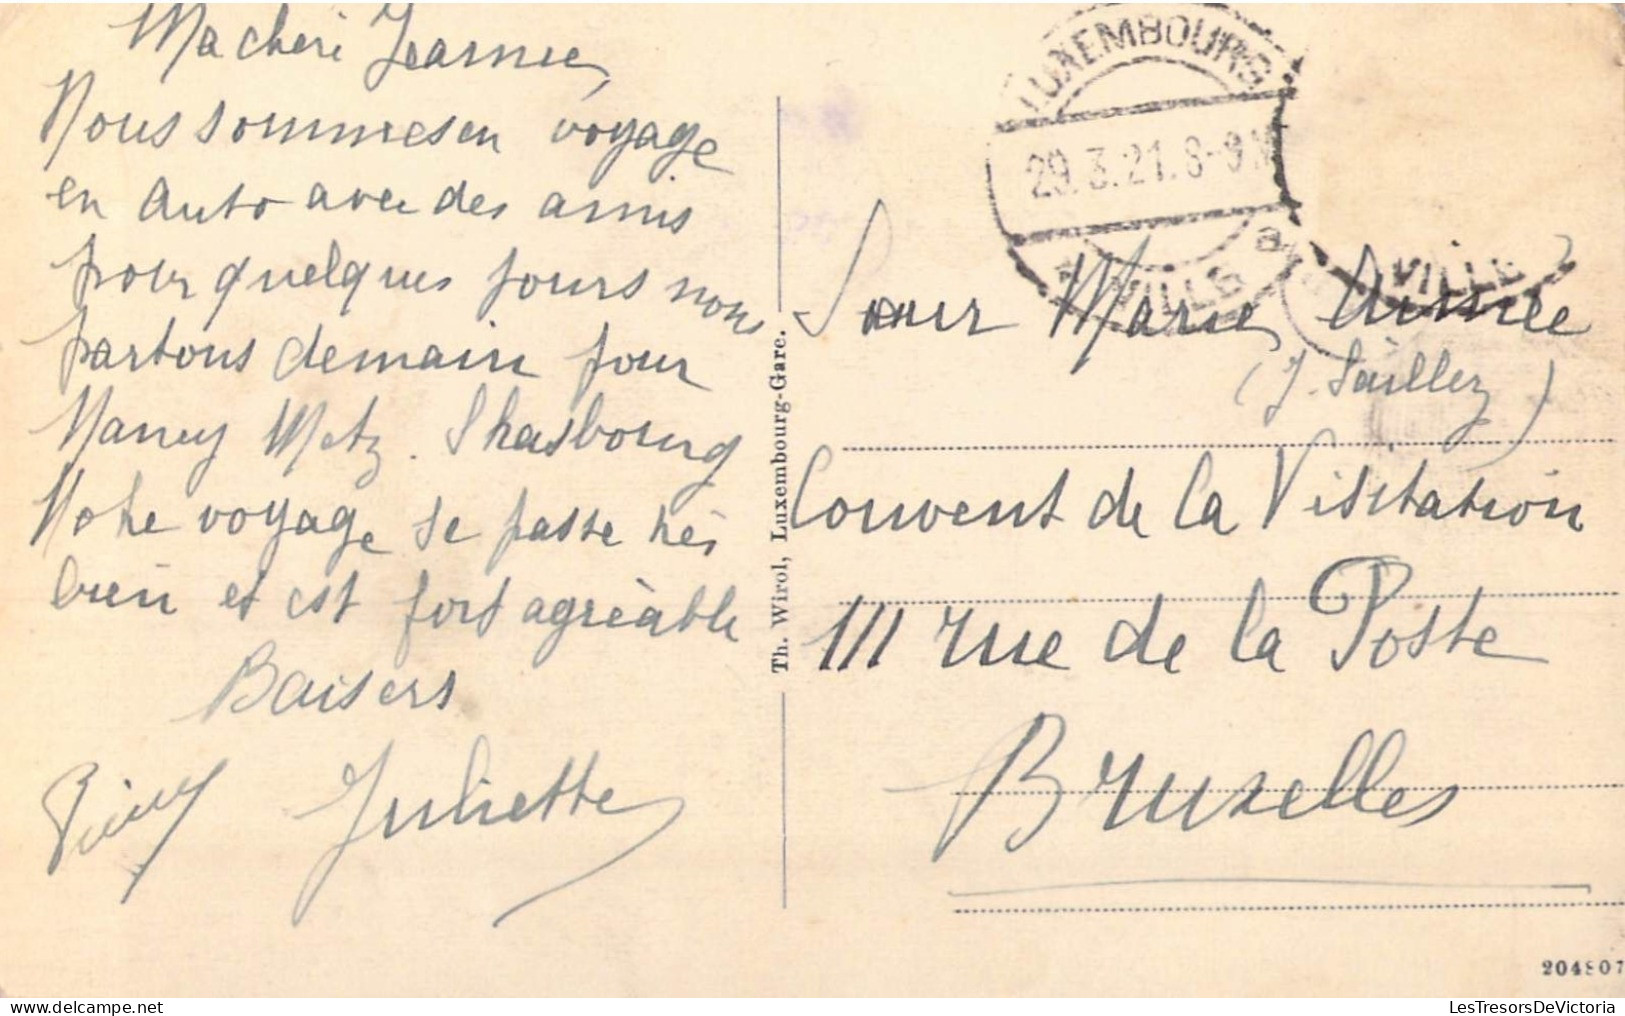 Ma cheri Jeanne,
Nous sommes en voyage
en auto avec des amis
pour quelques jours nous
partons demain pour
Nancy Metz. Strasbourg
Notre voyage se passe très
bien et est fort agréable
Baisers
Juliette
Th. Wirol, Luxembourg-Gare.
LUXEMBOURG
29.3.21.8-9
a
VILLE
VILLE
Soeur Marie Aimée
(J. Saillez)
Couvent de la Visitation
111 rue de la Poste
Bruxelles
204807
LesTresorsDeVictoria